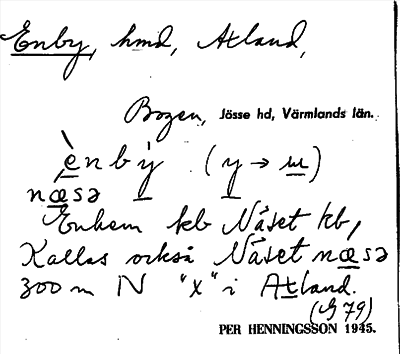 Enby, hmd, Axland,
Bogen, Jösse hd, Värmlands län.
ènbỳ (y → ɯ)
næsə
Enhem kb Näset kb,
Kallas också Näset næsə
300 m N "x" i Axland.
(G 79)
PER HENNINGSSON 1945.